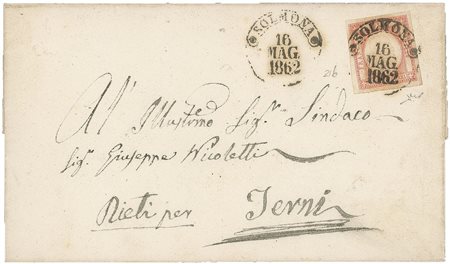 SOLMONA
16
MAG.
1862
SOLMONA
16
MAG.
1862
26
All' Illustmo Sigr. Sindaco
Sigr. Giuseppe Nicoletti
Rieti per Terni